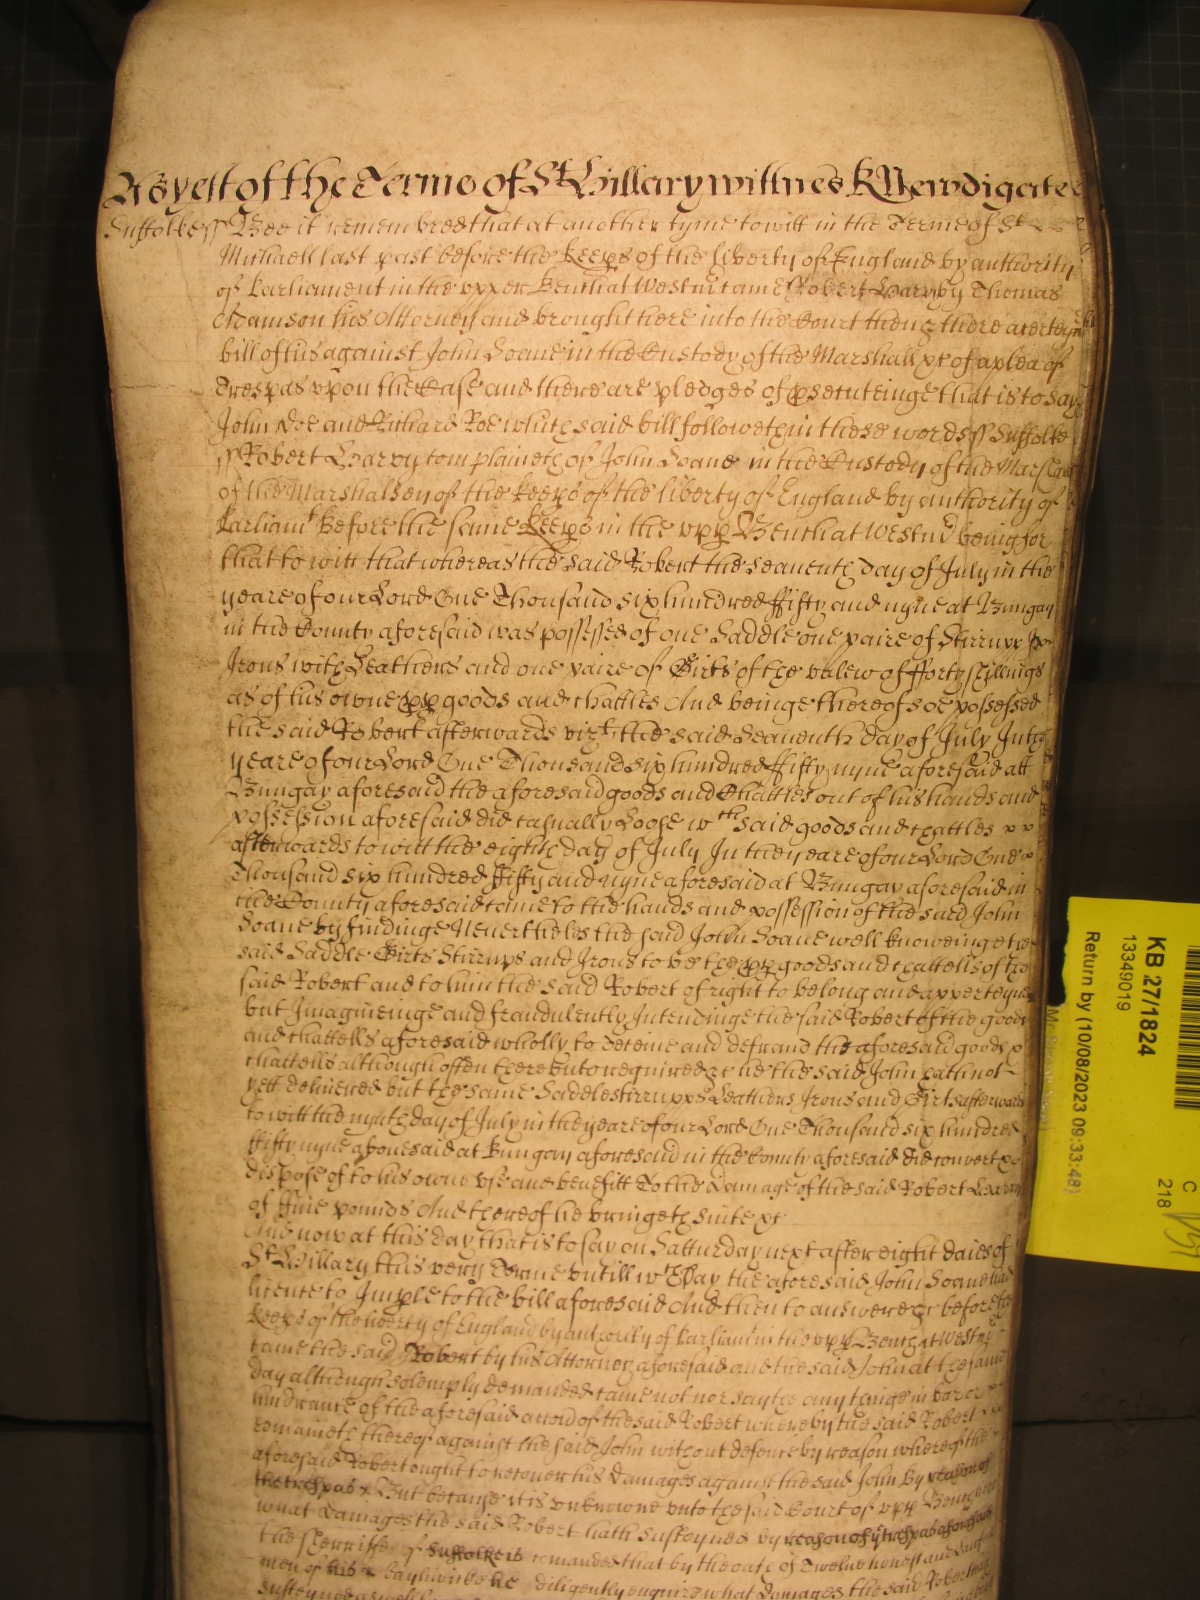 As yett of the Terme of St Hillary wittnes R Newdigate
Suffolke ss Bee it remembred that at another tyme to witt in the Terme of St
Michaell last past before the Keeps of the liberty of England by authority
of Parliament in the upper Bench at Westm came Robert Harvy by Thomas
Adamson his Attorney and brought here into the Court then & there a certeyn
bill of his against John Soane in the Custody of the Marshall &c of a plea of
Trespas upon the Case and there are pledges of psecuteinge that is to say
John Doe and Richard Roe which said bill followeth in these words ss Suffolke
ss Robert Harvy complaineth of John Soane in the Custody of the Marshall
of the Marshalsey of the keeps of the liberty of England by authority of
Parliamt before the same Keeps in the upp Bench at Westm being for
that to witt that whereas the said Robert the seaventh day of July in the
yeare of our Lord One Thousand six hundred ffifty and nyne at Bungay
in the County aforesaid was possessed of one Saddle one paire of Stirrupp
Irons with Leathers and one paire of Girts of the valew of fforty shillings
as of his owne pp goods and chattles And beinge thereof soe possessed
the said Robert afterwards vizt the said Seaventh day of July In the
yeare of our Lord One Thousand six hundred ffifty nyne aforesaid att
Bungay aforesaid the aforesaid goods and Chattles out of his hands and
possession aforesaid did casually Loose wch said goods and chattles
afterwards to witt the eighth day of July In the yeare of our Lord One
Thousand six hundred ffifty and nyne aforesaid at Bungay aforesaid in
the County aforesaid came to the hands and possession of the said John
Soane by findinge Neverthelesse the said John Soane well knoweinge the
said Saddle Girts Stirrups and Irons to be the pp goods and chattells of the
said Robert and to him the said Robert of right to belong and apperteyne
but Imagineinge and fraudulently Intendinge the said Robert of the goods
and chattells aforesaid wholly to deteine and defraud the aforesaid goods &
chattells although often thereunto required &c he the said John hath not
yett delivered but the same Saddle stirrupps Leathers Irons and Girts afterwards
to witt the nynth day of July in the yeare of our Lord One Thousand six hundred
ffifty nyne abovesaid at Bungay aforesaid in the County aforesaid did convert &
dispose of to his owne use and benefitt To the Damage of the said Robert Harvy
of ffive pounds And thereof he bringeth suite &c
And now at this day that is to say on Satturday next after eight daies of
St Hillary this very Terme untill wch Day the aforesaid John Soane had
licence to Imple to the bill aforesaid And then to answere &c before the
Keeps of the liberty of England by authority of Parliamt in the upp Bench at Westm
came the said Robert by his Attorney aforesaid and the said John at the same
day although solemply demanded came not nor sayth any thinge in barr or
hindrance of the aforesaid accion of the said Robert whereby the said Robert
remaineth thereof against the said John without defence by reason whereof the
aforesaid Robert ought to recover his damages against the said John by reason of
the trespas & But because it is unknowne unto the said Court of upp Bench
what Damages the said Robert hath susteyned by reason of ye trespas aforesaid
the sherriffe of Suffolke is comanded that by the oath of Twelve honest and lawfull
men of his Bayliwicke &c diligently enquire what Damages the said Robert hath
susteyned
KB 27/1824
13349019
Return by (10/08/2023 09:33:48)
C
218